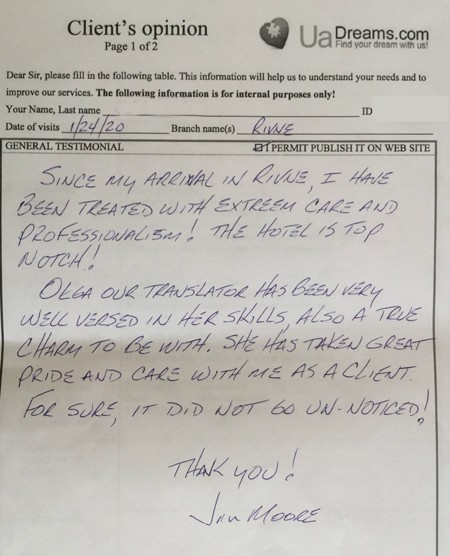 Client's opinion
Page 1 of 2
UaDreams.com
Find your dream with us!
Dear Sir, please fill in the following table. This information will help us to understand your needs and to
improve our services. The following information is for internal purposes only!
Your Name, Last name ID
Date of visits 1/24/20 Branch name(s) RIVNE
GENERAL TESTIMONIAL I PERMIT PUBLISH IT ON WEB SITE
SINCE MY ARRIVAL IN RIVNE, I HAVE
BEEN TREATED WITH EXTREEM CARE AND
PROFESSIONALISM! THE HOTEL IS TOP
NOTCH!
OLGA OUR TRANSLATOR HAS BEEN VERY
WELL VERSED IN HER SKILLS, ALSO A TRUE
CHARM TO BE WITH. SHE HAS TAKEN GREAT
PRIDE AND CARE WITH ME AS A CLIENT.
FOR SURE, IT DID NOT GO UN-NOTICED!
THANK YOU!
MOORE